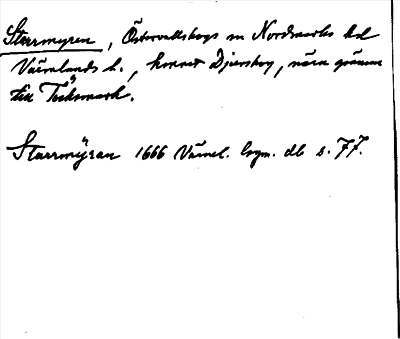 Starrmyren, Östervallskogs sn Nordmarks hd
Värmlands l., kornet Djurskog, nära gränsen
till Töcksmark.
Starrmÿran 1666 Värml. lysn. db s. 77.